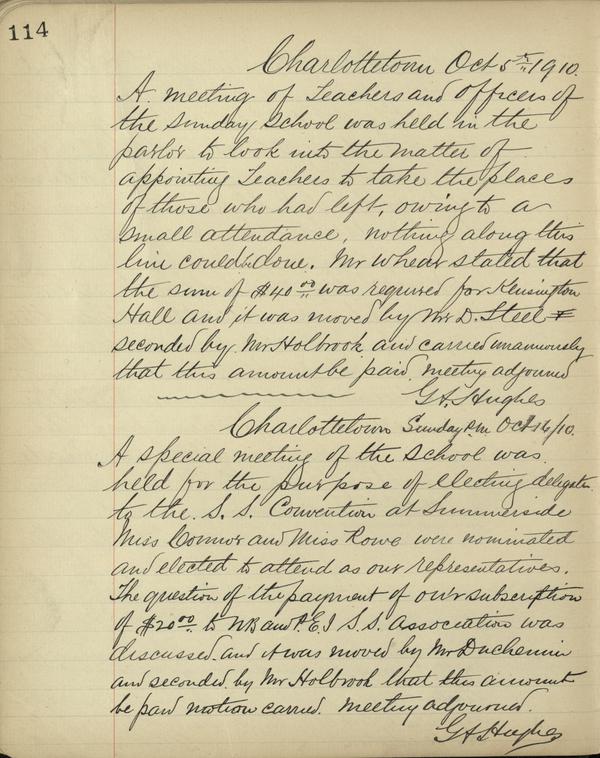 114
Charlottetown Oct 5th 1910.
A. meeting of Teachers and officers of
the Sunday School was held in the
parlor to look into the matter of
appointing Teachers to take the places
of those who had left, owing to a
small attendance, nothing along this
line could be done. Mr Whear stated that
the sum of $40 00 was required for Kensington
Hall and it was moved by Mr D. Steel &
seconded by Mr Holbrook and carried unanimously
that this amount be paid. Meeting adjourned
G H Hughes
Charlottetown Sunday P.m Oct 16/10.
A special meeting of the School was
held for the purpose of electing delegates
to the S. S. Convention at Summerside
Miss Connor and Miss Rowe were nominated
and elected to attend as our representatives.
The question of the payment of our subscription
of $20 00 to NB and P.E.I S.S. Association was
discussed and it was moved by Mr Duchemin
and seconded by Mr Holbrook that this amount
be paid motion carried. Meeting adjourned.
G H Hughes